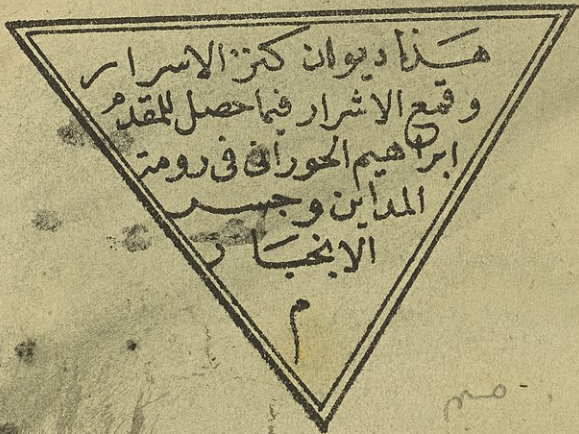 هذا ديوان كنز الاسرار
وقمع الاشرار فيما حصل للمقدم
ابراهيم الحورانى فى رومة
المداين وجسر
الانجبار
م